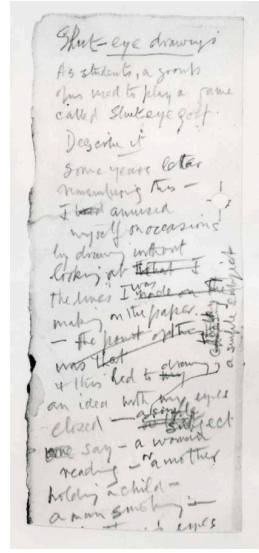 Shut-eye drawings
As students, a group
of us used to play a game
called Shut eye golf.
Describe it
Some years later
remembering this –
I had amused
myself on occasions
by drawing without
looking at that I
the lines I was made on
making on the paper.
– the point of the
was that
& this led to my drawing
an idea with my eyes
closed – a simple
subject
say – a woman
reading – or a mother
holding a child –
a man smoking –
eyes
a simple subject